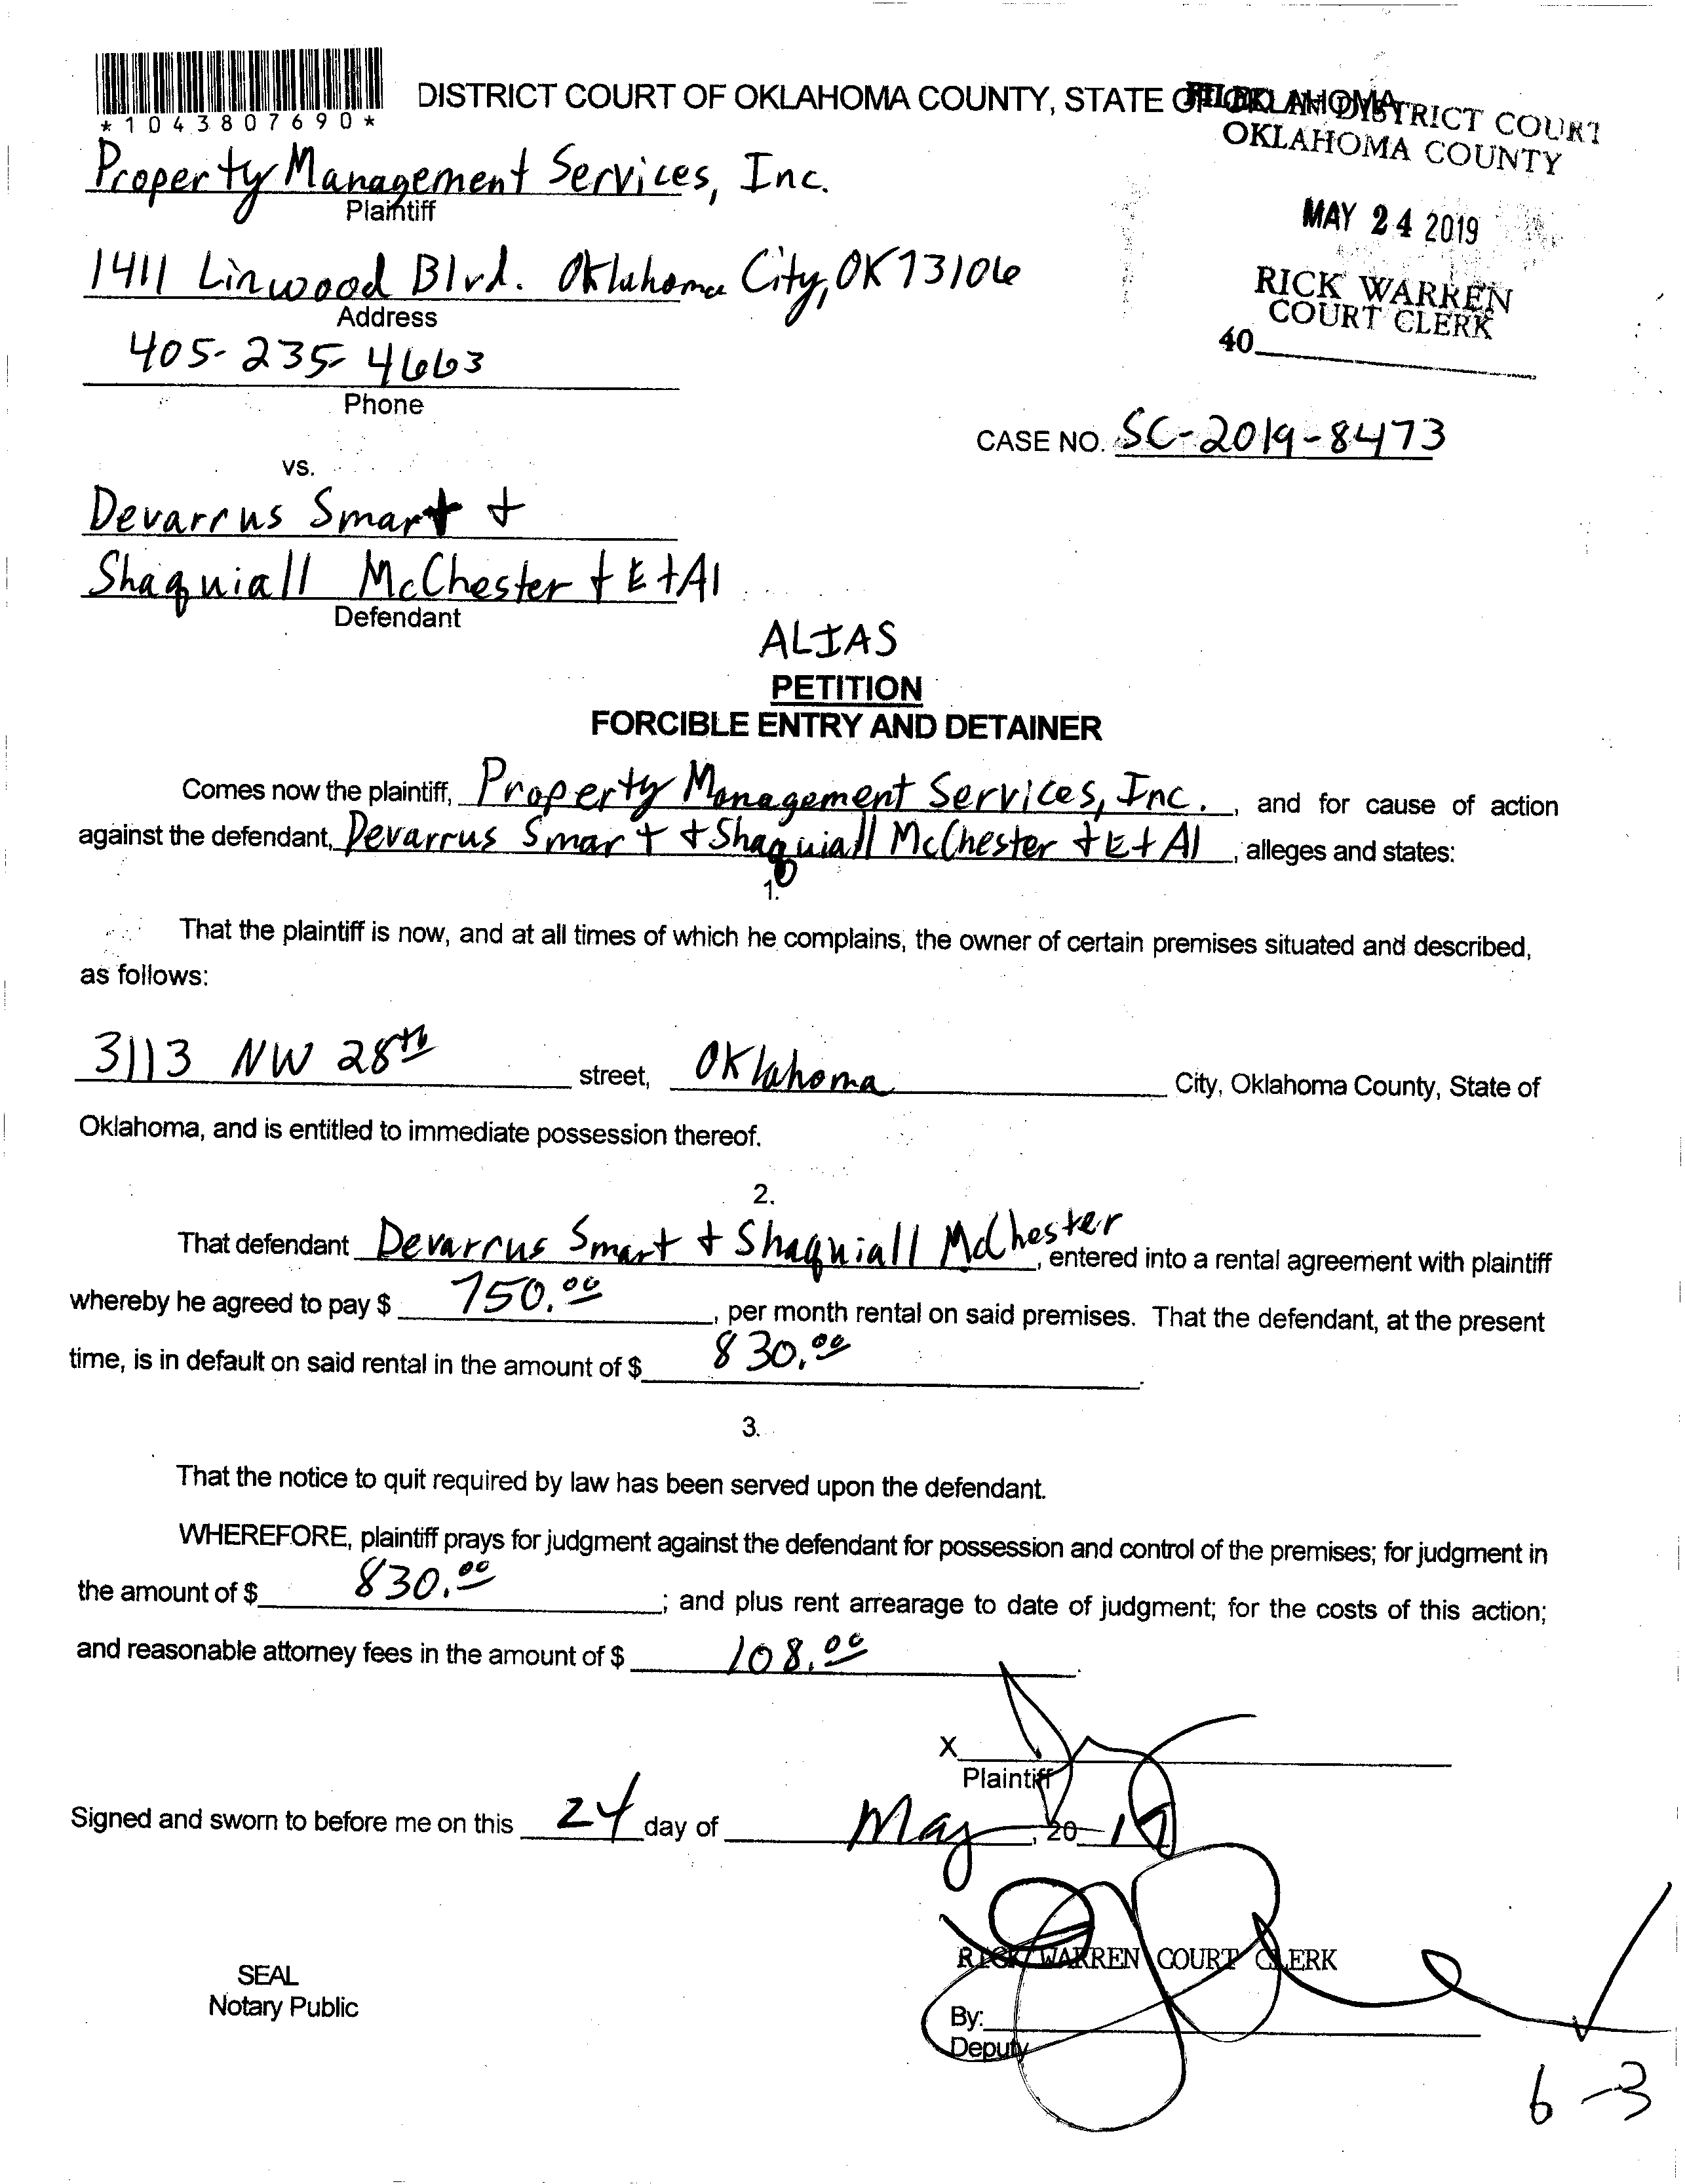 *1043807690*
DISTRICT COURT OF OKLAHOMA COUNTY, STATE OF OKLAHOMA
FILED IN DISTRICT COURT
OKLAHOMA COUNTY
MAY 24 2019
RICK WARREN
COURT CLERK
40
Property Management Services, Inc.
Plaintiff
1411 Linwood Blvd. Oklahoma City, OK 73106
Address
405-235-4663
Phone
CASE NO. SC-2019-8473
vs.
Devarrus Smart +
Shaquiall McChester + Et Al
Defendant
ALIAS
PETITION
FORCIBLE ENTRY AND DETAINER
Comes now the plaintiff, Property Management Services, Inc., and for cause of action
against the defendant, Devarrus Smart + Shaquiall McChester + Et Al, alleges and states:
1.
That the plaintiff is now, and at all times of which he complains, the owner of certain premises situated and described,
as follows:
3113 NW 28th street, Oklahoma City, Oklahoma County, State of
Oklahoma, and is entitled to immediate possession thereof.
2.
That defendant Devarrus Smart + Shaquiall McChester, entered into a rental agreement with plaintiff
whereby he agreed to pay $ 750.00, per month rental on said premises. That the defendant, at the present
time, is in default on said rental in the amount of $ 830.00.
3.
That the notice to quit required by law has been served upon the defendant.
WHEREFORE, plaintiff prays for judgment against the defendant for possession and control of the premises; for judgment in
the amount of $ 830.00; and plus rent arrearage to date of judgment; for the costs of this action;
and reasonable attorney fees in the amount of $ 108.00.
X
Plaintiff
Signed and sworn to before me on this 24 day of May, 2019
RICK WARREN COURT CLERK
SEAL
Notary Public
By:
Deputy
6-3